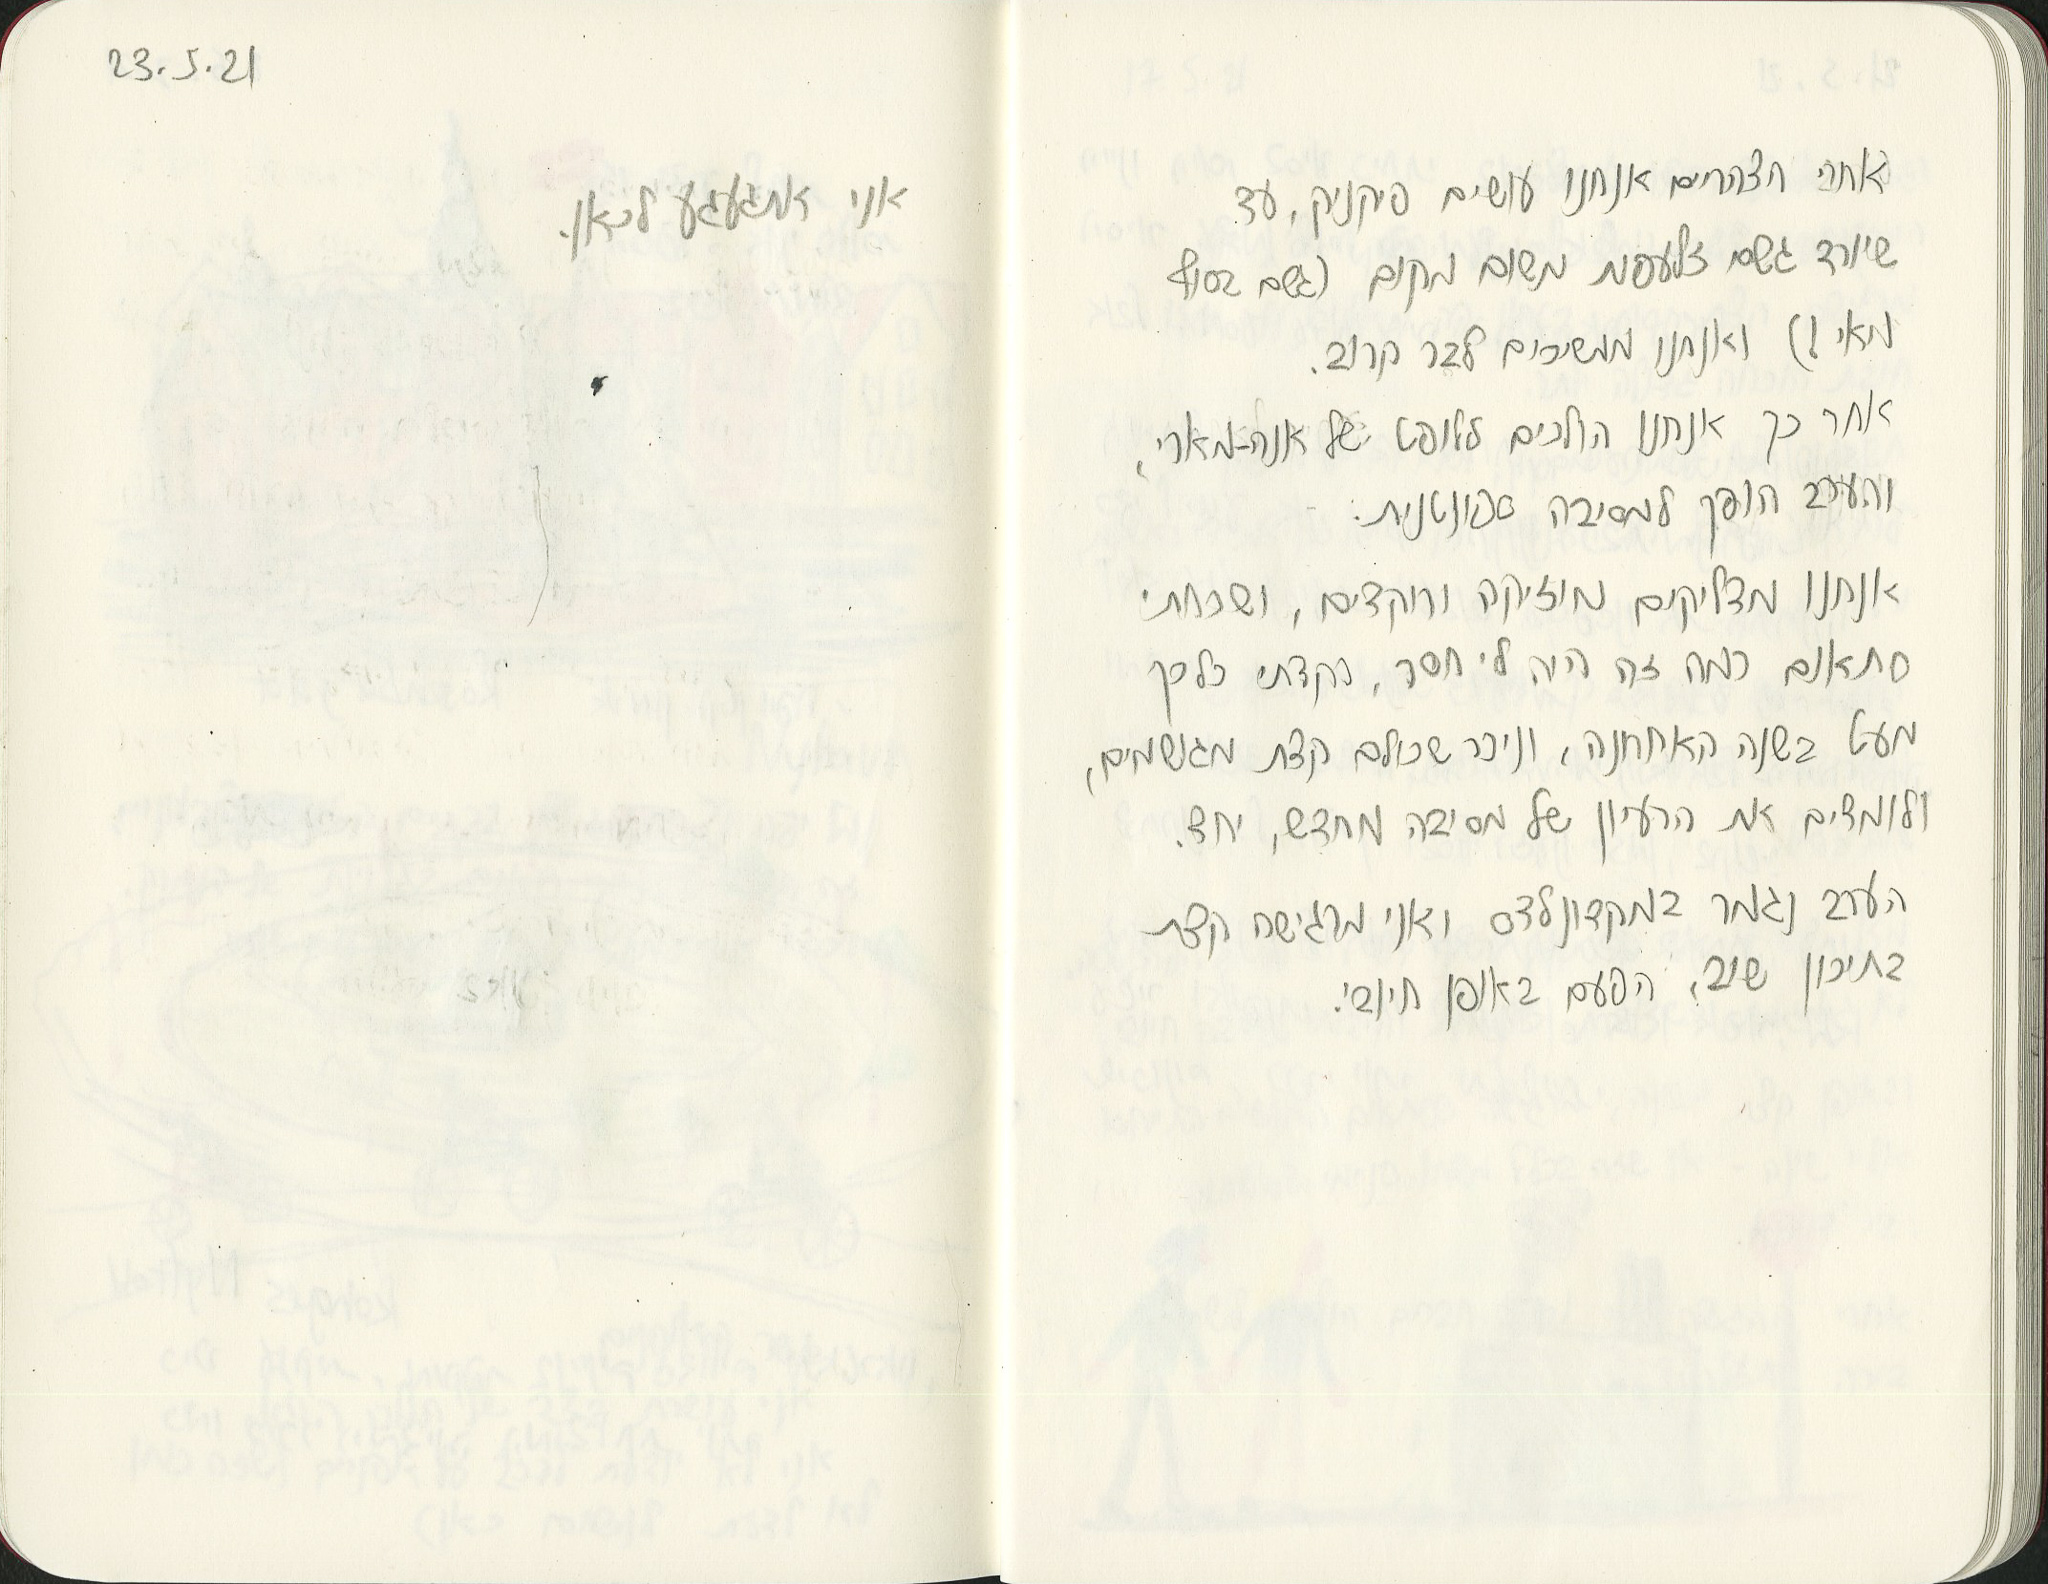 אחה הצהריים אנחנו עושים פיקניק, עד
שיורד גשם זלעפות משום מקום (גשם בסוף
מאי!) ואנחנו ממשיכים לבר קרוב.
אחר כך אנחנו הולכים ללופט של אנה-מארי,
והערב הופך למסיבה ספונטנית.
אנחנו מדליקים מוזיקה ורוקדים, ושכחתי
פתאום כמה זה היה לי חסר, רקדתי כל כך
מעט בשנה האחרונה, וניכר שכולם קצת מגושמים,
ולומדים את הרעיון של מסיבה מחדש, יחד.
הערב נגמר במקדונלדס ואני מרגישה קצת
בתיכון שוב, הפעם באופן חיובי.
23.5.21
אני אתגעגע לכאן.